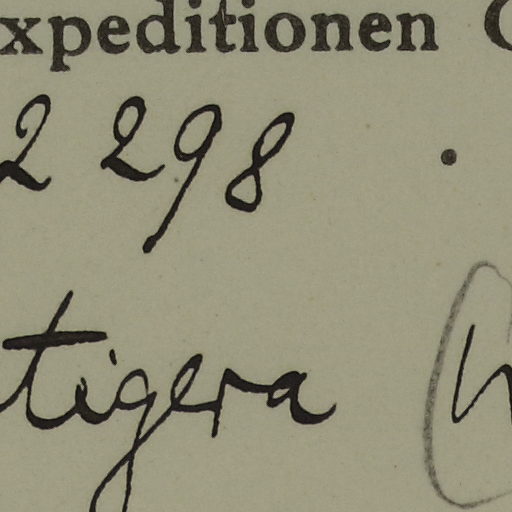 xpeditionen
2 298 .
tigera